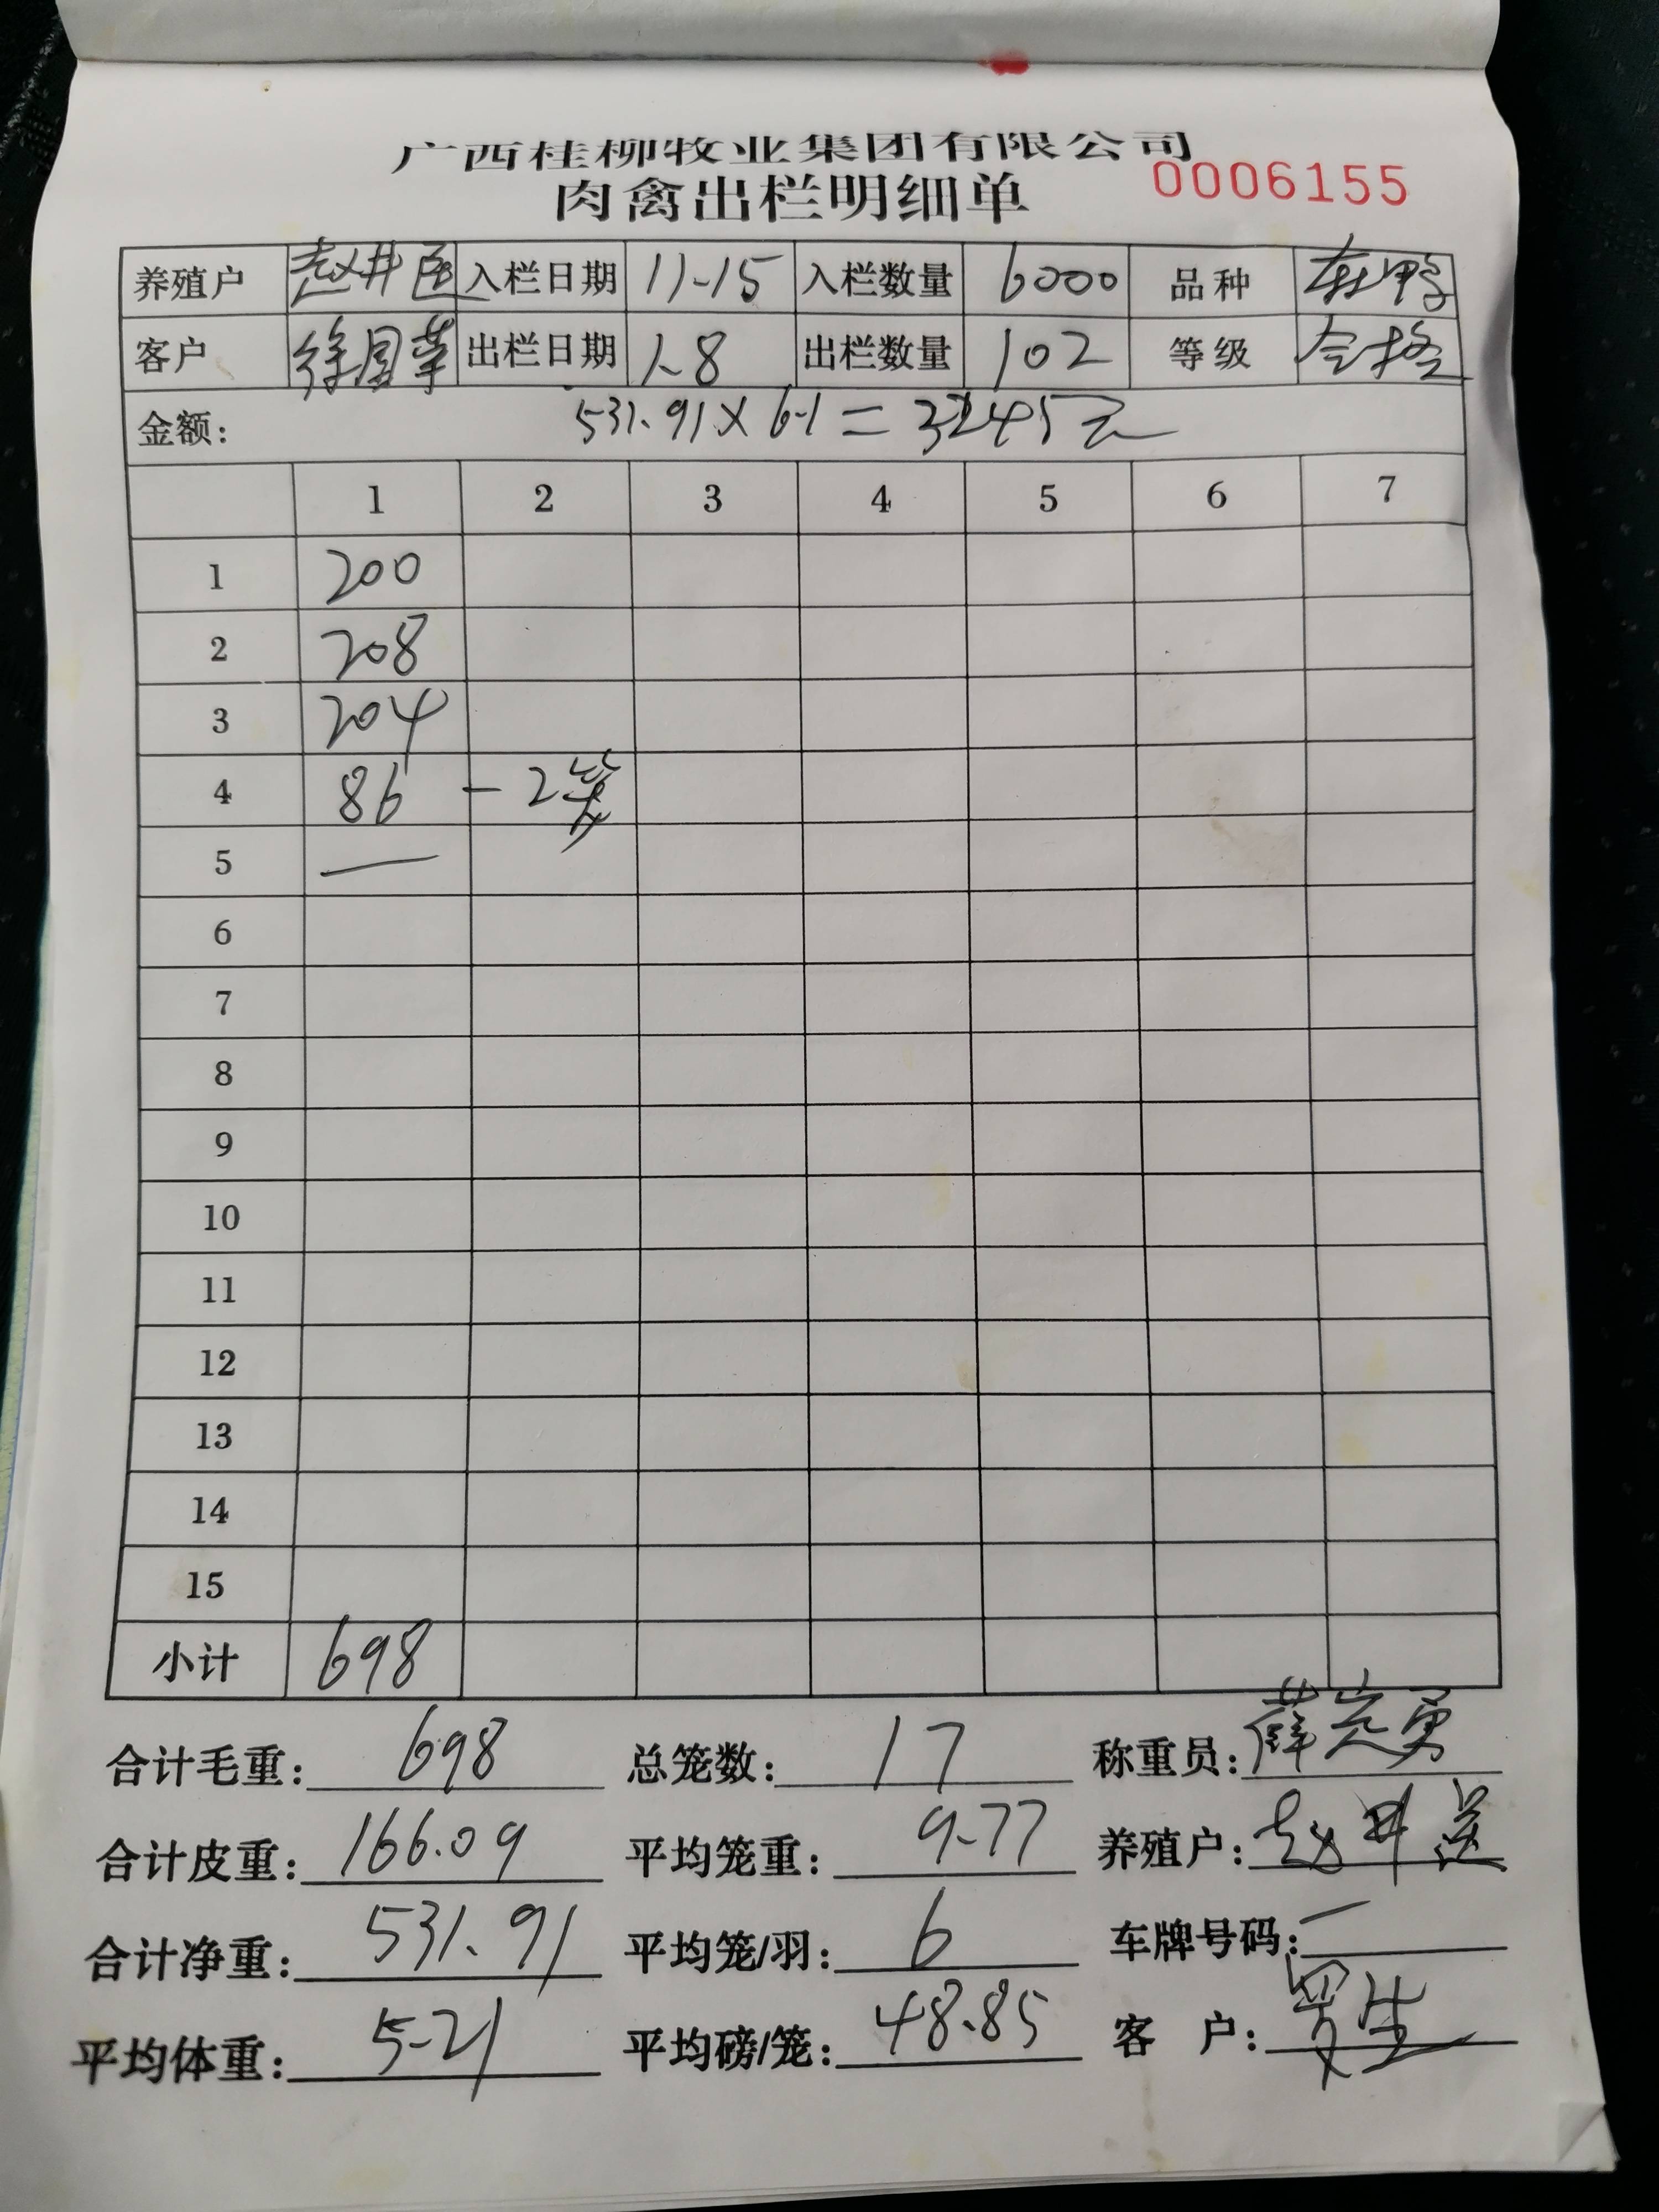 广西桂柳牧业集团有限公司
肉禽出栏明细单 0006155
养殖户 赵井 入栏日期 11-15 入栏数量 6000 品种
客户 徐国华 出栏日期 1-8 出栏数量 102 等级 合格
金额: 531.91×6.1=3245元
1 2 3 4 5 6 7
1 200
2 208
3 204
4 86 - 2笼
5 —
6
7
8
9
10
11
12
13
14
15
小计 698
合计毛重: 698 总笼数: 17 称重员: 薛宪勇
合计皮重: 166.09 平均笼重: 9.77 养殖户: 赵井
合计净重: 531.91 平均笼/羽: 6 车牌号码: —
平均体重: 5.21 平均磅/笼: 48.85 客 户: